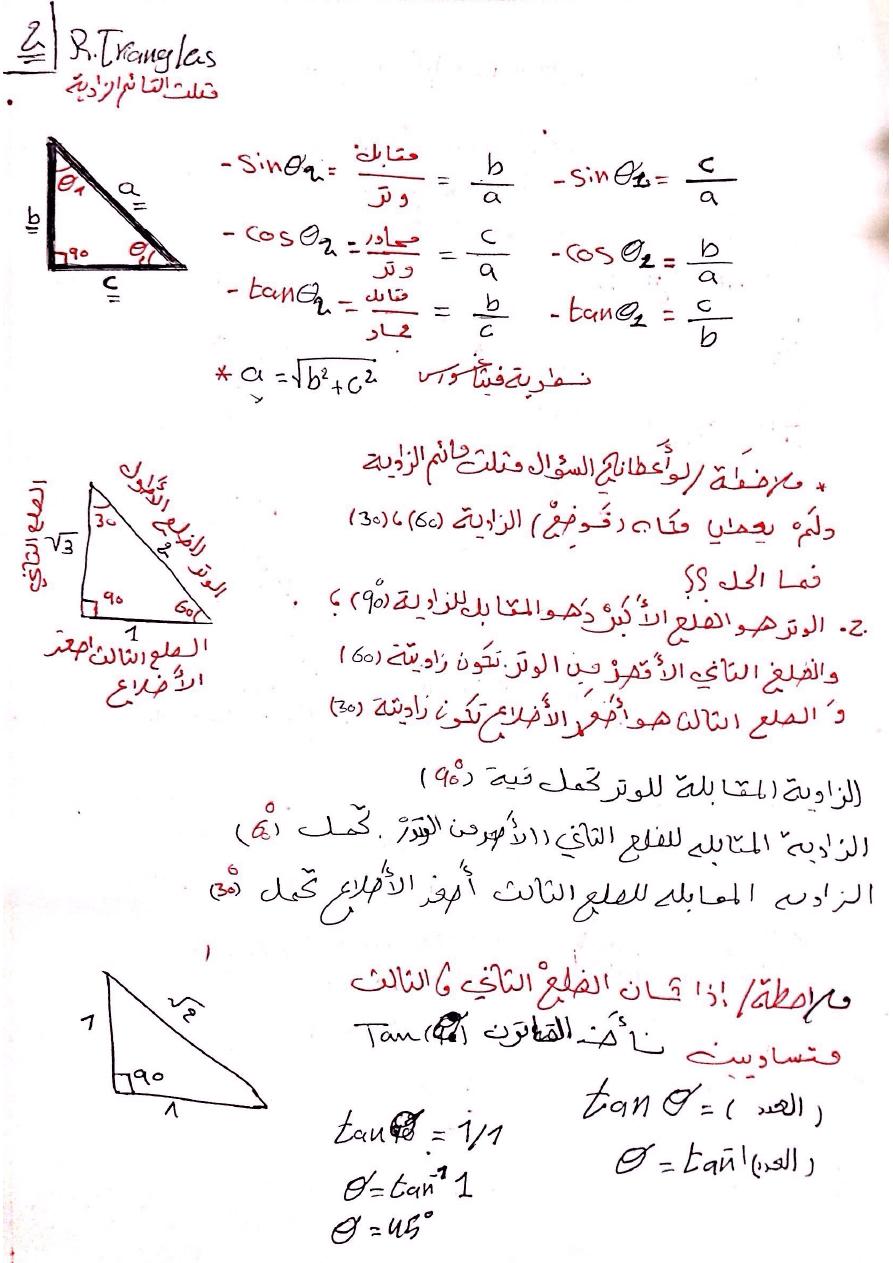 2 R.Triangles
مثلث القائم الزاوية
θ1 a b 90 θ2 c
-sinθ2 = مقابل/وتر = b/a -sinθ1 = c/a
-cosθ2 = مجاور/وتر = c/a -cosθ1 = b/a
-tanθ2 = مقابل/مجاور = b/c -tanθ1 = c/b
* a = √b²+c² نظرية فيثاغورس
* ملاحظة / لو أعطاني السؤال مثلث قائم الزاوية
ولم يعطي مكان (موضع) الزاوية (60) ، (30)
فما الحل ؟؟
ج. الوتر هو الضلع الأكبر وهو المقابل للزاوية (90°) ؛
والضلع الثاني الأقصر من الوتر تكون زاويتة (60)
و الضلع الثالث هو أصغر الأضلاع تكون زاويتة (30)
الوتر الضلع الأطول
الضلع الثاني
30 √3 2 90 60 1
الضلع الثالث اصغر
الأضلاع
الزاوية المقابلة للوتر تحمل قيمة (90°)
الزاوية المقابله للضلع الثاني ((الأصغر من الوتر. تحمل (60°)
الزاويه المقابله للضلع الثالث أصغر الأضلاع تحمل (30°)
ملاحظة/ إذا كان الضلع الثاني و الثالث
متساويين نأخذ القانون Tan(θ)
1 √2 90 1
tan θ = (العدد)
θ = tan⁻¹(العدد)
tan θ = 1/1
θ = tan⁻¹ 1
θ = 45°